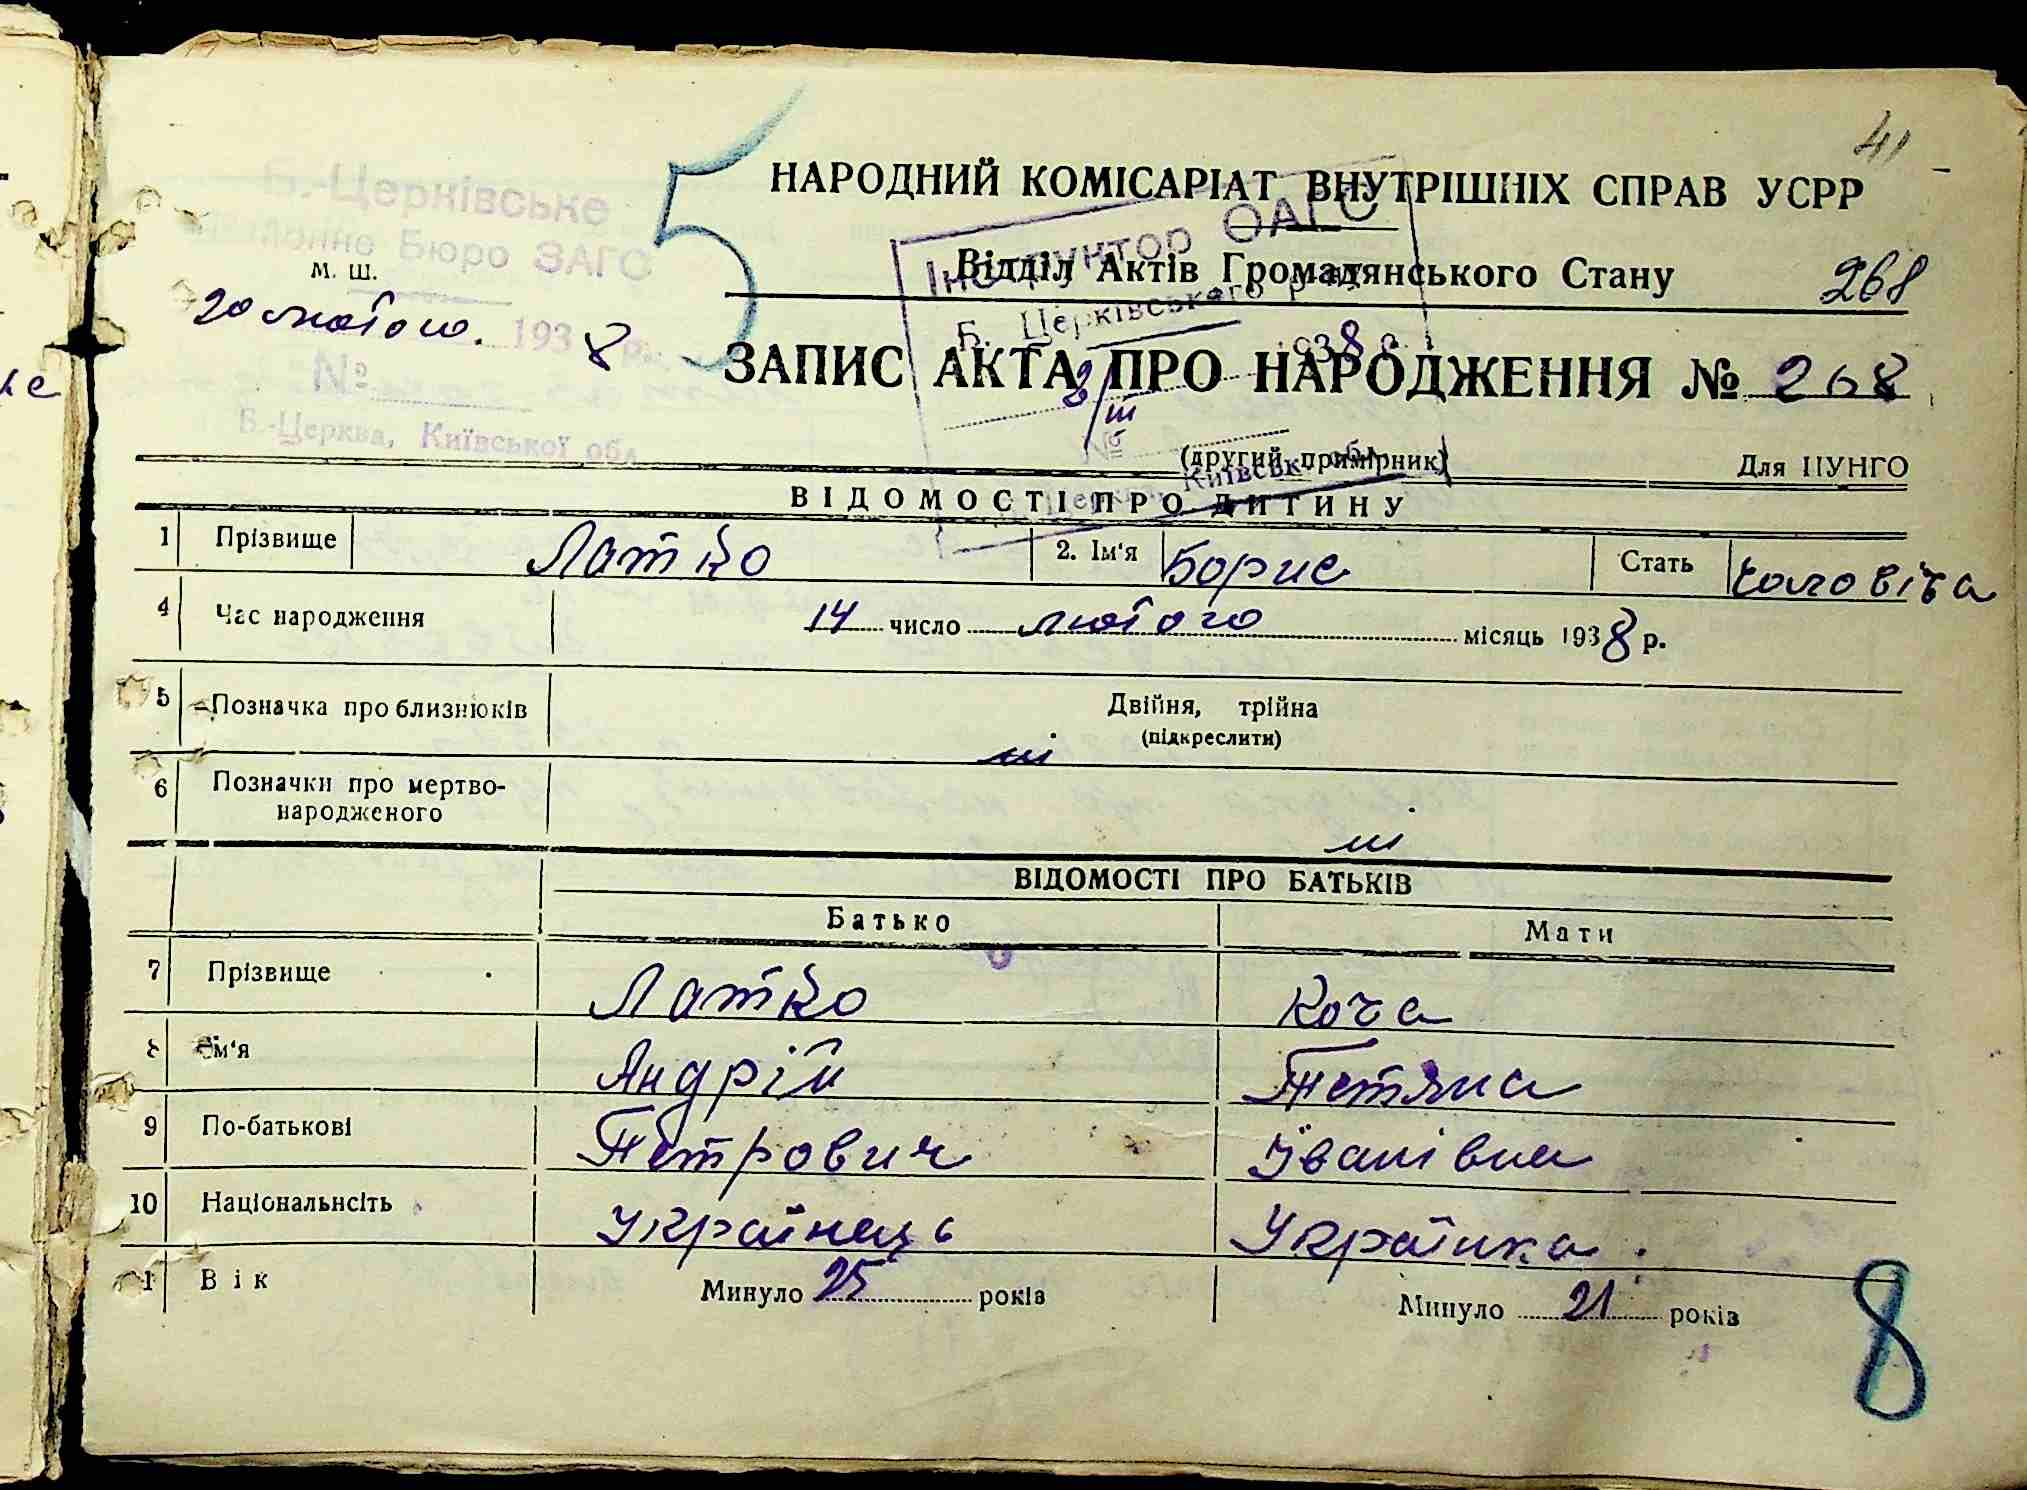 41
НАРОДНИЙ КОМІСАРІАТ ВНУТРІШНІХ СПРАВ УСРР
Б.-Церківське
Бюро ЗАГС
м. ш.
20 лютого. 1938 р.
№
Б.-Церква, Київської обл.
5
Інструктор ОАГС
Б. Церківського
1938 р.
2/III
№
Церква, Київськ. обл.
Відділ Актів Громадянського Стану
268
ЗАПИС АКТА ПРО НАРОДЖЕННЯ № 268
(другий примірник)
Для ЦУНГО
ВІДОМОСТІ ПРО ДИТИНУ
1 Прізвище Латко 2. Ім'я Борис Стать чоловіча
4 Час народження 14 число лютого місяць 1938 р.
5 Позначка про близнюків Двійня, трійна
(підкреслити)
ні
6 Позначки про мертво-
народженого
ні
ВІДОМОСТІ ПРО БАТЬКІВ
Батько Мати
7 Прізвище Латко Коча
8 Ім'я Андрій Тетяна
9 По-батькові Петрович Іванівна
10 Національнсіть Українець Українка.
1 Вік Минуло 25 років Минуло 21 років
8